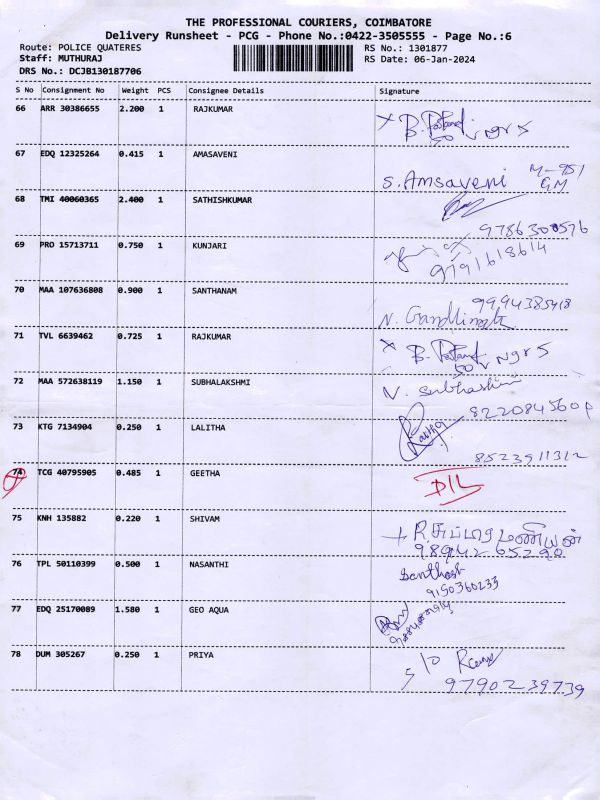 THE PROFESSIONAL COURIERS, COIMBATORE
Delivery Runsheet - PCG - Phone No.:0422-3505555 - Page No.:6
Route: POLICE QUATERES RS No.: 1301877
Staff: MUTHURAJ RS Date: 06-Jan-2024
DRS No.: DCJB130187706
S No Consignment No Weight PCS Consignee Details Signature
66 ARR 30386655 2.200 1 RAJKUMAR
67 EDQ 12325264 0.415 1 AMASAVENI
S. Amsaveni
68 TMI 40060365 2.400 1 SATHISHKUMAR
69 PRO 15713711 0.750 1 KUNJARI
9791618614
70 MAA 107636808 0.900 1 SANTHANAM
9994385418
71 TVL 6639462 0.725 1 RAJKUMAR
72 MAA 572638119 1.150 1 SUBHALAKSHMI
V. Subhashini
73 KTG 7134904 0.250 1 LALITHA
8523911312
74 TCG 40795905 0.485 1 GEETHA D/L
75 KNH 135882 0.220 1 SHIVAM
R.சுப்பிரமணியன்
98942 65290
76 TPL 50110399 0.500 1 NASANTHI
Santhosh
9150360233
77 EDQ 25170089 1.580 1 GEO AQUA
78 DUM 305267 0.250 1 PRIYA
S/O
9790239739